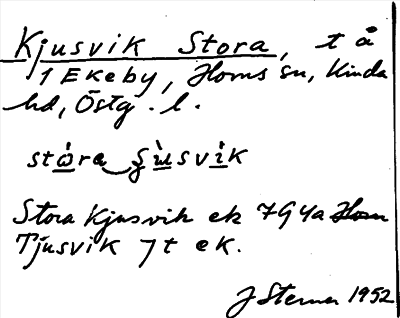 Kjusvik Stora, t å
1 Ekeby, Horns sn, Kinda
hd, Östg. l.
stòra ʃùsvìk
Stora Kjusvik ek 7G4a
Tjusvik Jt ek.
J Sterner 1952